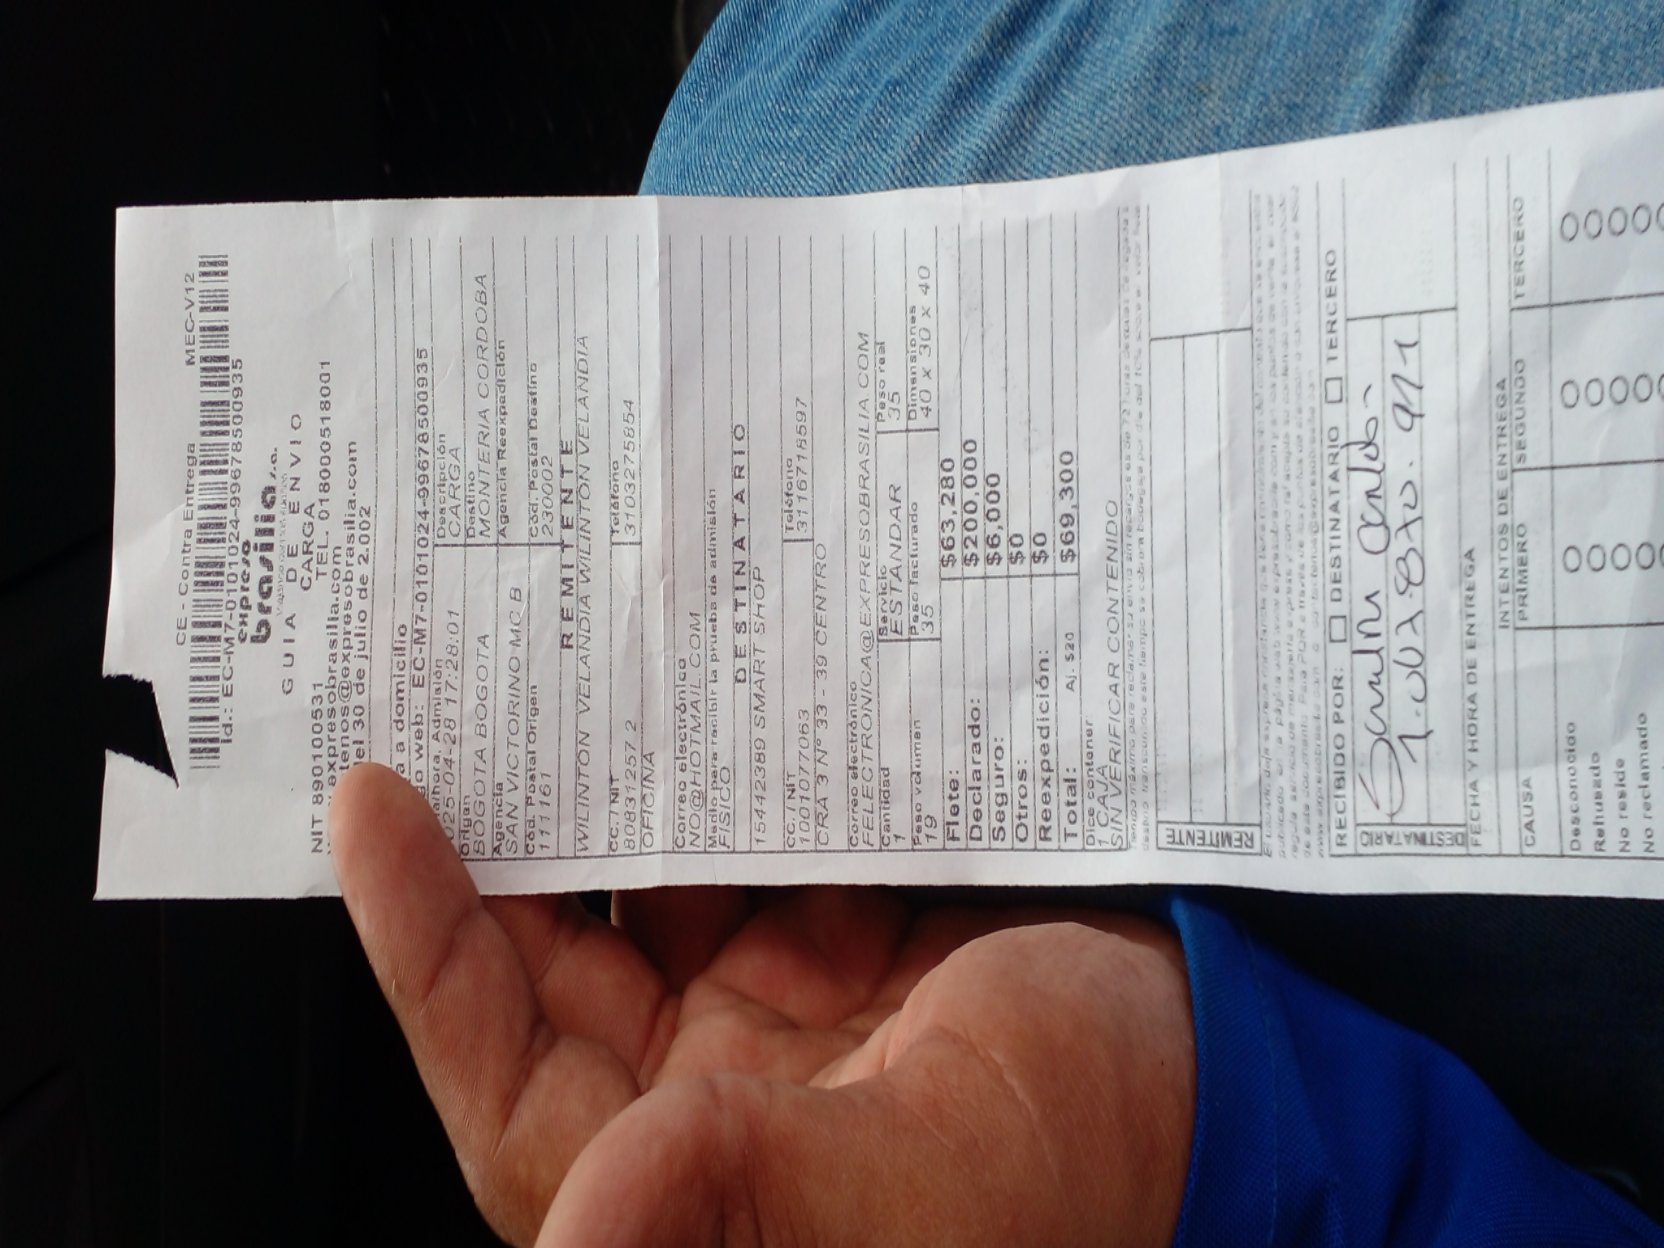 CE - Contra Entrega MEC-V12
Id.: EC-M7-0101024-99678500935
expreso
brasilia s.a.
GUIA DE ENVIO
CARGA
NIT 890100531 TEL. 018000518001
expresobrasilia.com
tenos@expresobrasilia.com
del 30 de julio de 2.002
a a domicilio
go web: EC-M7-0101024-99678500935
ha/hora. Admisión Descripción
025-04-28 17:28:01 CARGA
Origen Destino
BOGOTA BOGOTA MONTERIA CORDOBA
Agencia Agencia Reexpedición
SAN VICTORINO MCB
Cód. Postal Origen Cód. Postal Destino
111161 230002
REMITENTE
WILINTON VELANDIA WILINTON VELANDIA
CC./ NIT Teléfono
80831257 2 3103275854
OFICINA
Correo electrónico
NO@HOTMAIL.COM
Medio para recibir la prueba de admisión
FISICO
DESTINATARIO
15442389 SMART SHOP
CC./ NIT Teléfono
1001077063 3116718597
CRA 3 N° 33 - 39 CENTRO
Correo electrónico
FELECTRONICA@EXPRESOBRASILIA.COM
Cantidad Servicio Peso real
1 ESTANDAR 35
Peso volumen Peso facturado Dimensiones
19 35 40 x 30 x 40
Flete: $63,280
Declarado: $200,000
Seguro: $6,000
Otros: $0
Reexpedición: $0
Total: Aj. $20 $69,300
Dice contener
1 CAJA
SIN VERIFICAR CONTENIDO
REMITENTE
RECIBIDO POR: DESTINATARIO TERCERO
DESTINATARIO
FECHA Y HORA DE ENTREGA
INTENTOS DE ENTREGA
CAUSA PRIMERO SEGUNDO TERCERO
Desconocido
Rehusado
No reside
No reclamado